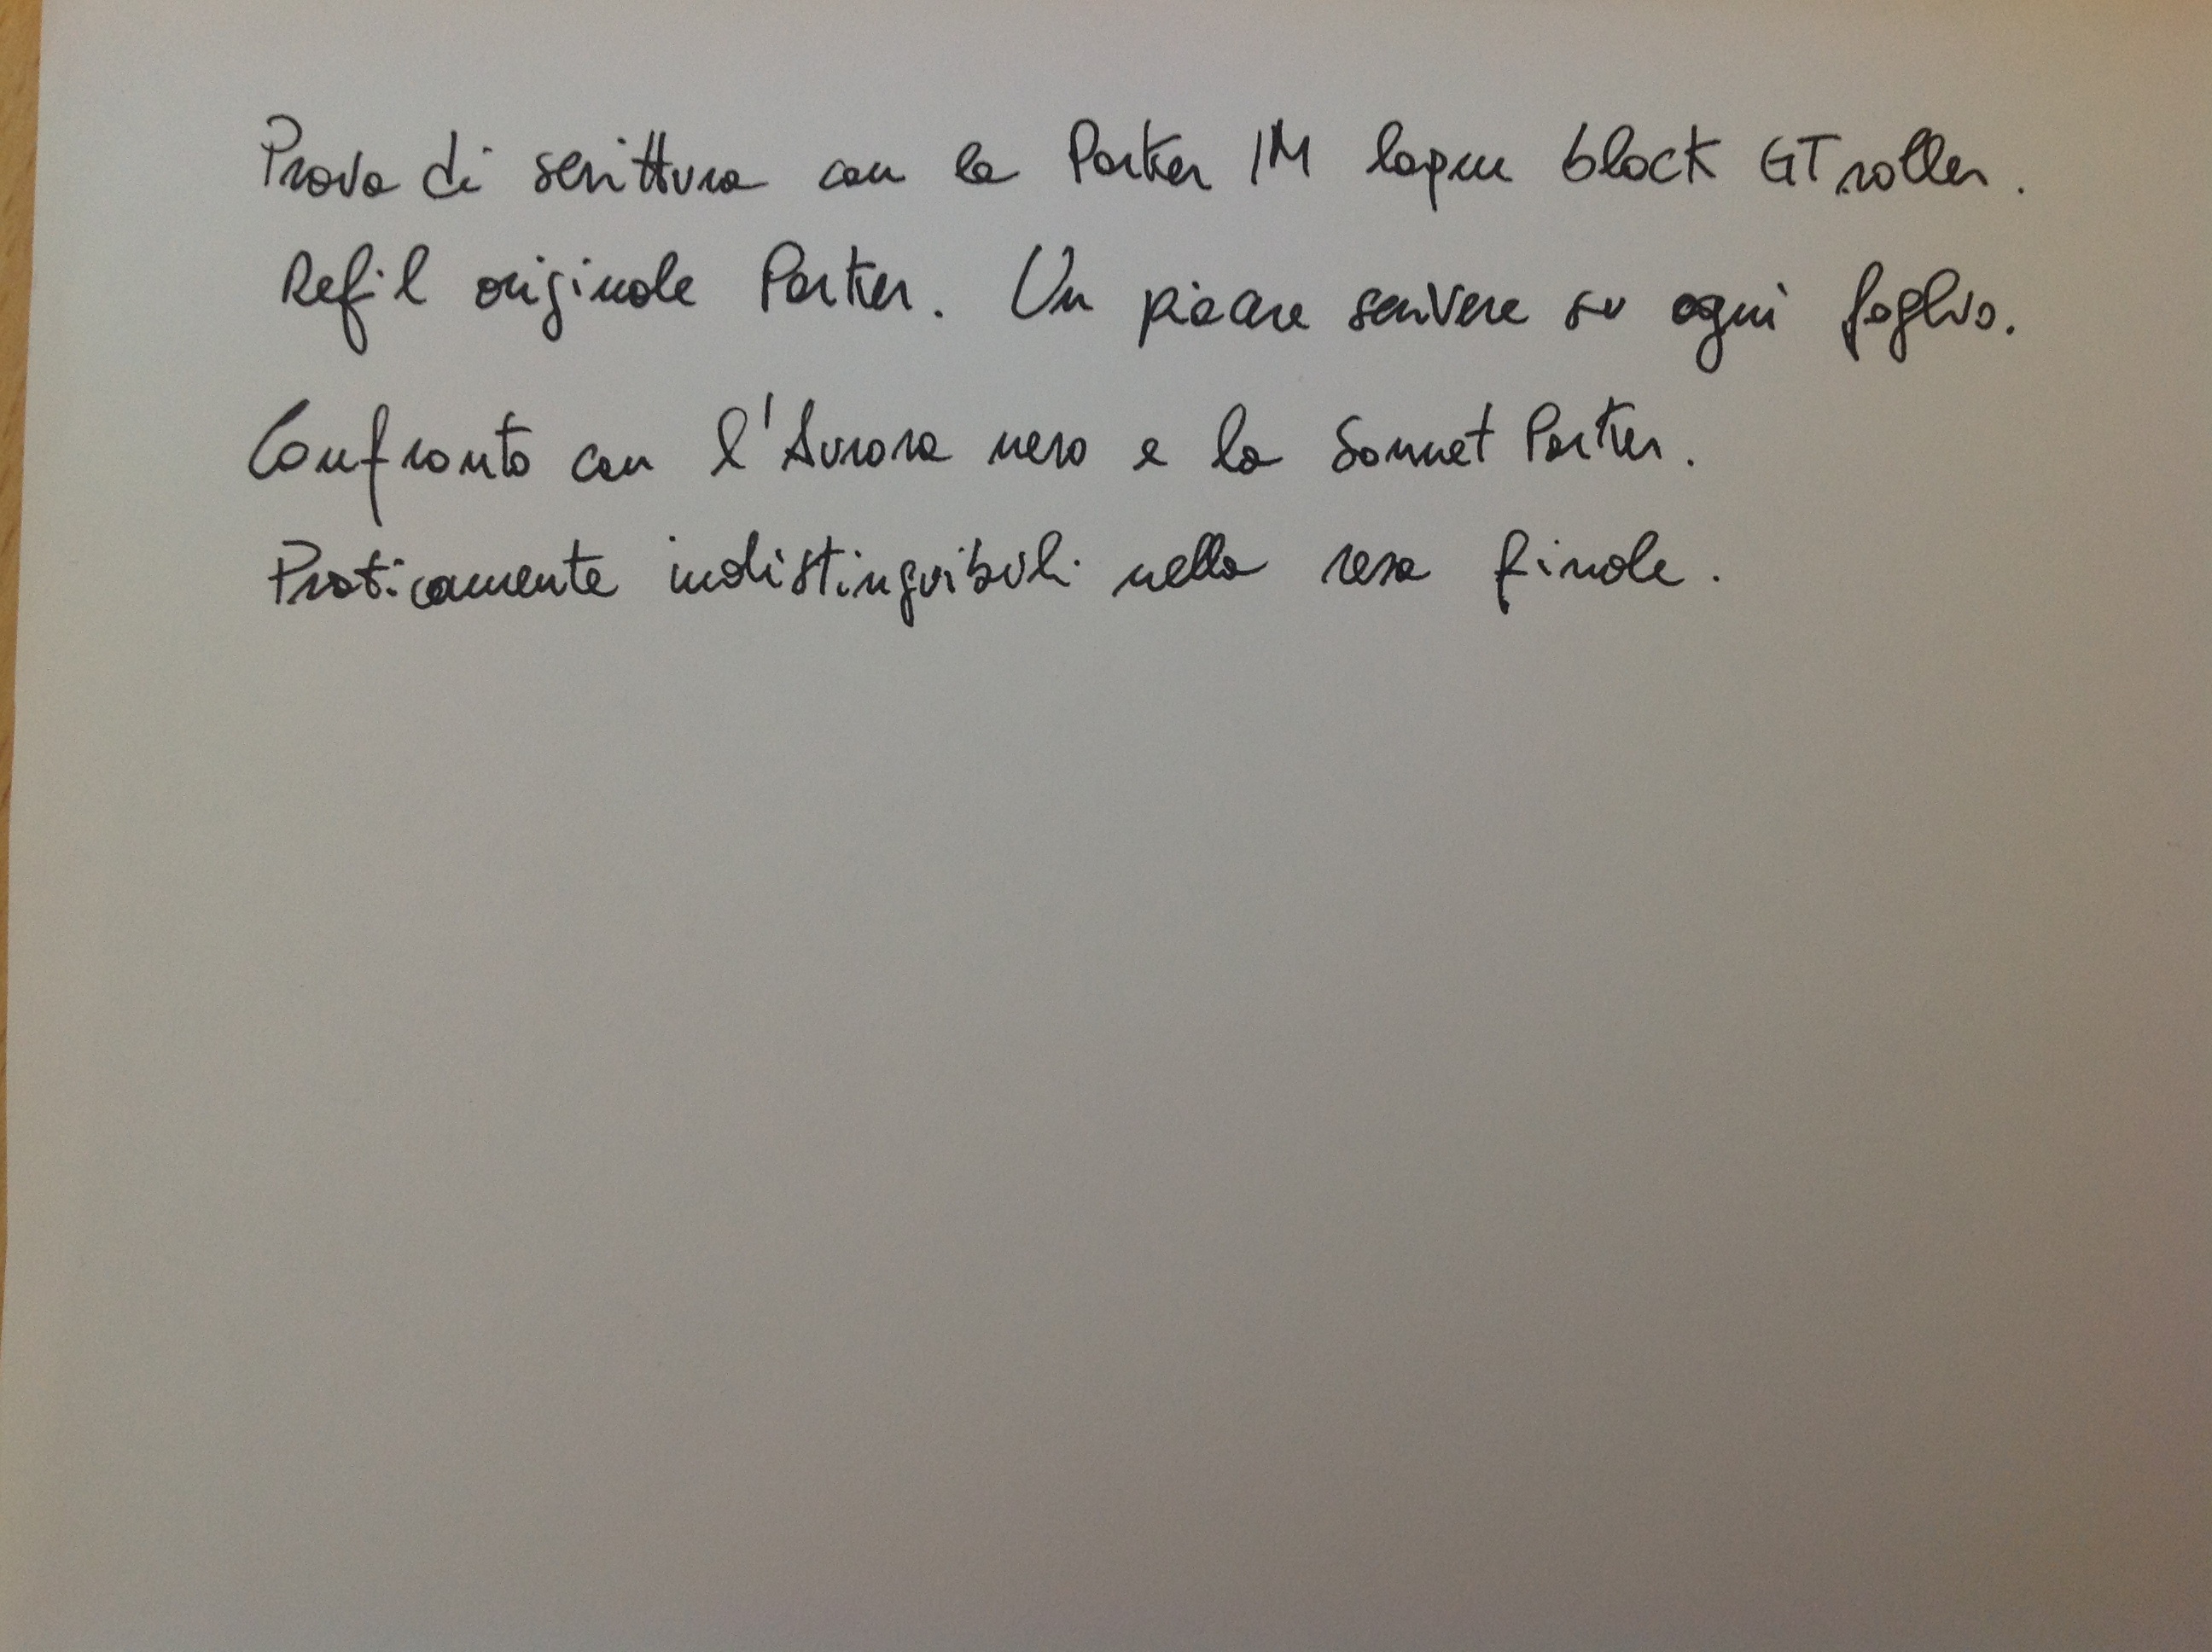 Prova di scrittura con la Parker IM laque black GT roller.
Refil originale Parker. Un piacere scrivere su ogni foglio.
Confronto con l'Aurora nero e la Sonnet Parker.
Praticamente indistinguibili nella resa finale.